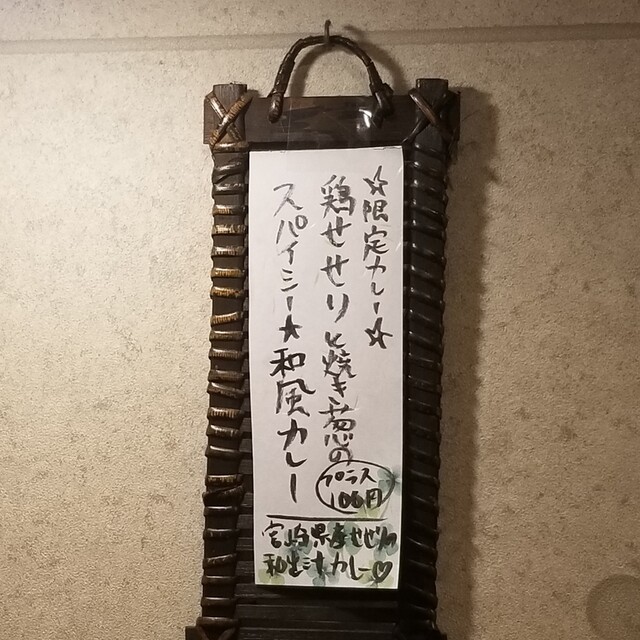 ☆限定カレー☆
鶏せせりと焼き葱の
スパイシー★和風カレー
プラス
100円
宮崎県産せせり
和出汁カレー♡